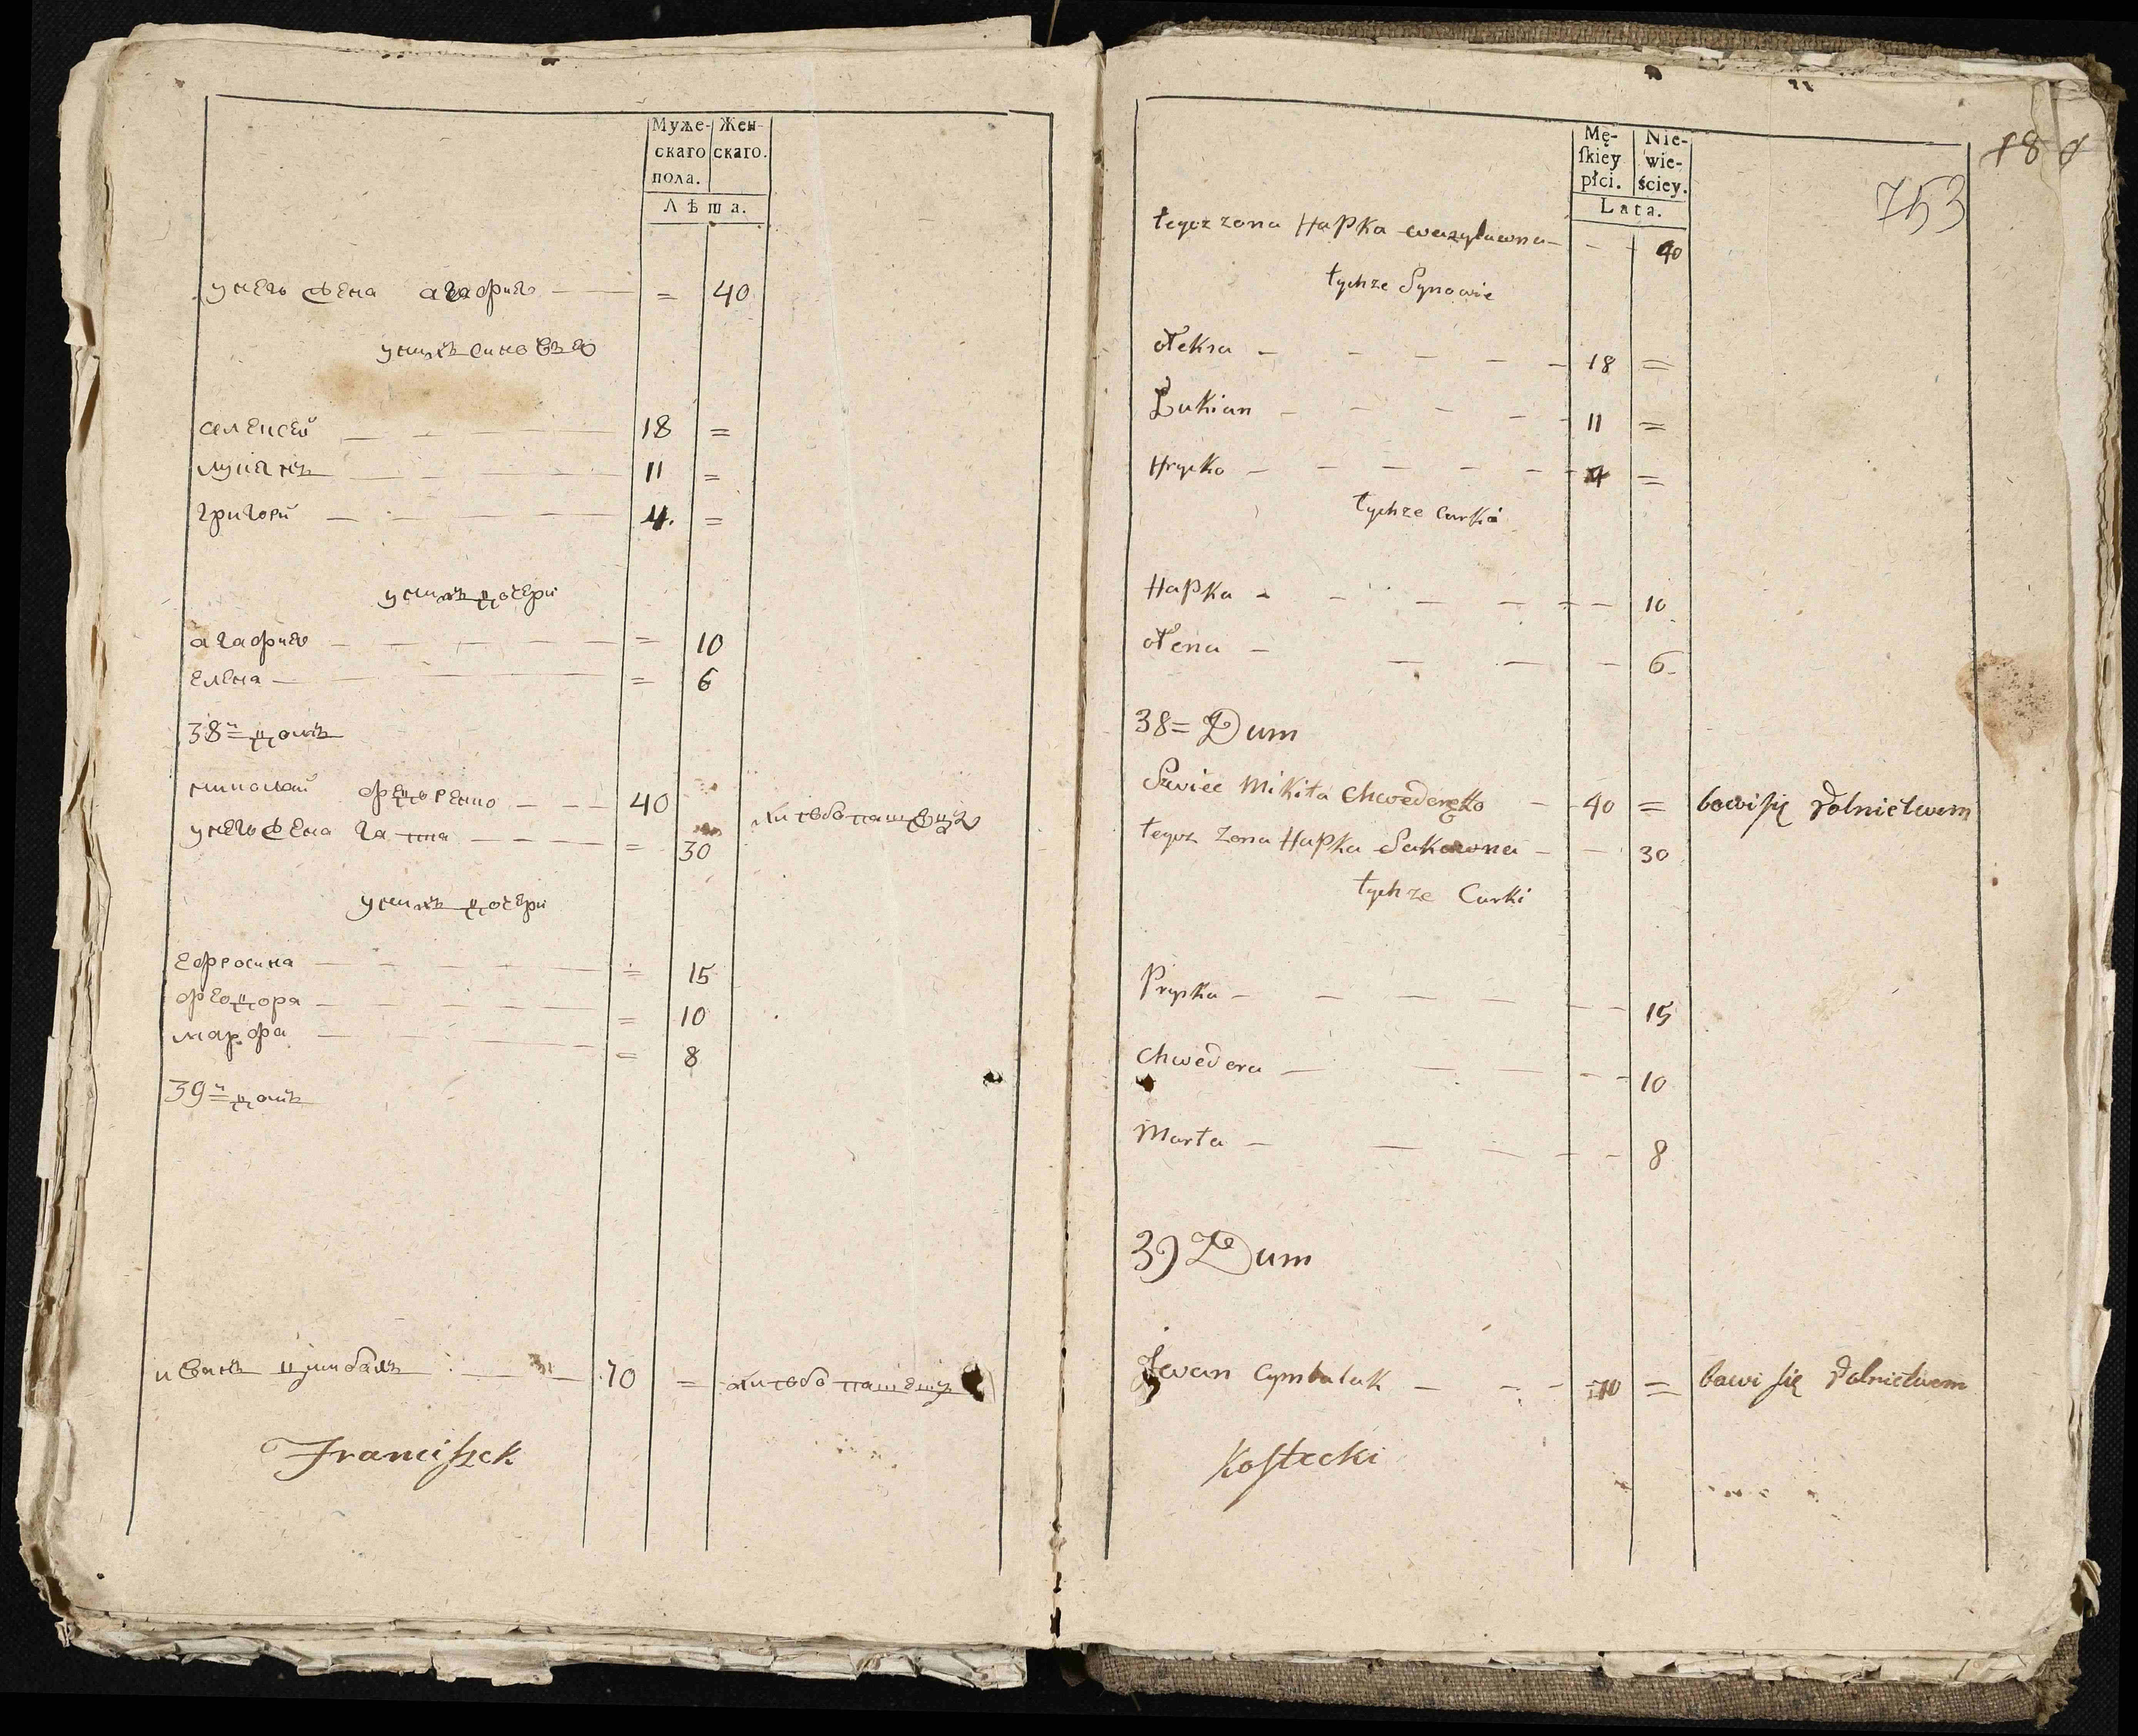 Муже-
скаго
пола.
Жен-
скаго.
Лѣта.
у него жена агафия — = 40
у нихъ синовъя
алексей — 18 =
лукянъ — 11 =
григорей — 4. =
у нихъ дочери
агафия — = 10
елена — = 6
38й домъ
николай федоренко — 40 хлѣбопашецъ
у него жена гапка — = 30
у нихъ дочери
ефросина — = 15
феодора — = 10
марфа — = 8
39й домъ
иванъ цимбалъ — 70 = хлѣбопашецъ
Franciſzek
Mę-
ſkiéy
płci.
Nie-
wie-
ściey.
Lata.
753
tegoz zona Hapka wasylowna — 40
tychze Synowie
ołeksa — 18 =
Łukian — 11 =
Hryćko — 4 =
tychze Curki
Hapka — 10
ołena — 6
38 = Dum
Szwiec Mikita Chwederenko — 40 = bawi się Rolnictwem
tegoz Zona Hapka Sakowna — 30
tychze Curki
Pryska — 15
Chwedora — 10
Marta — 8
39 Dum
Jwan Cymbaluk — 70 = bawi się Rolnictwem
Koſtecki